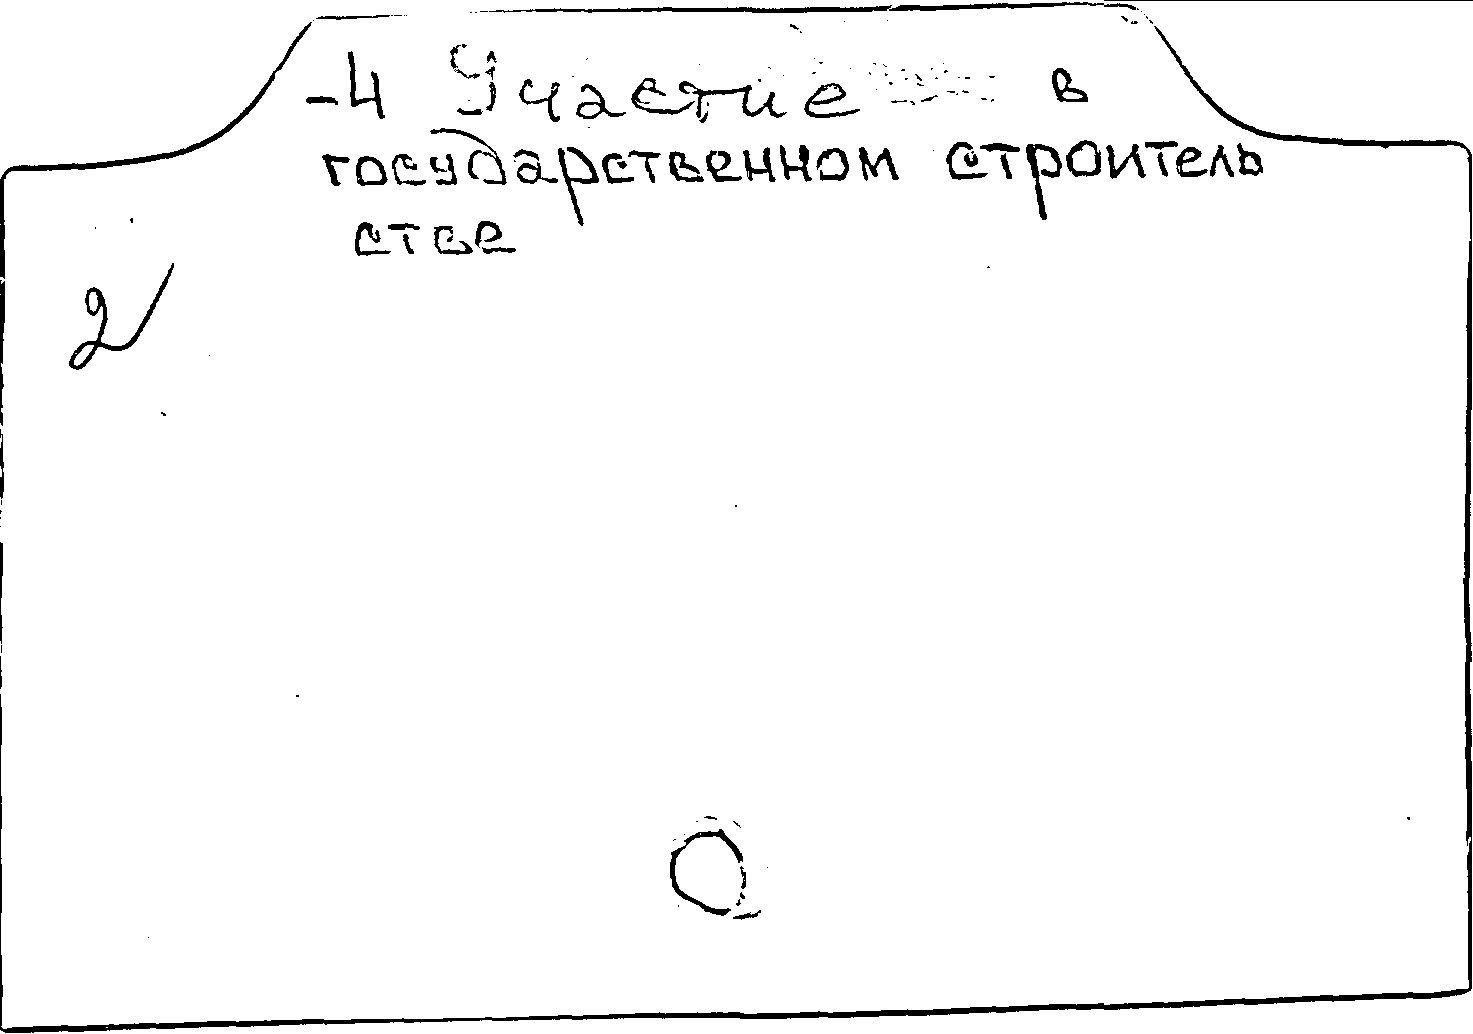 -4 Участие в
государственном строитель
стве
2